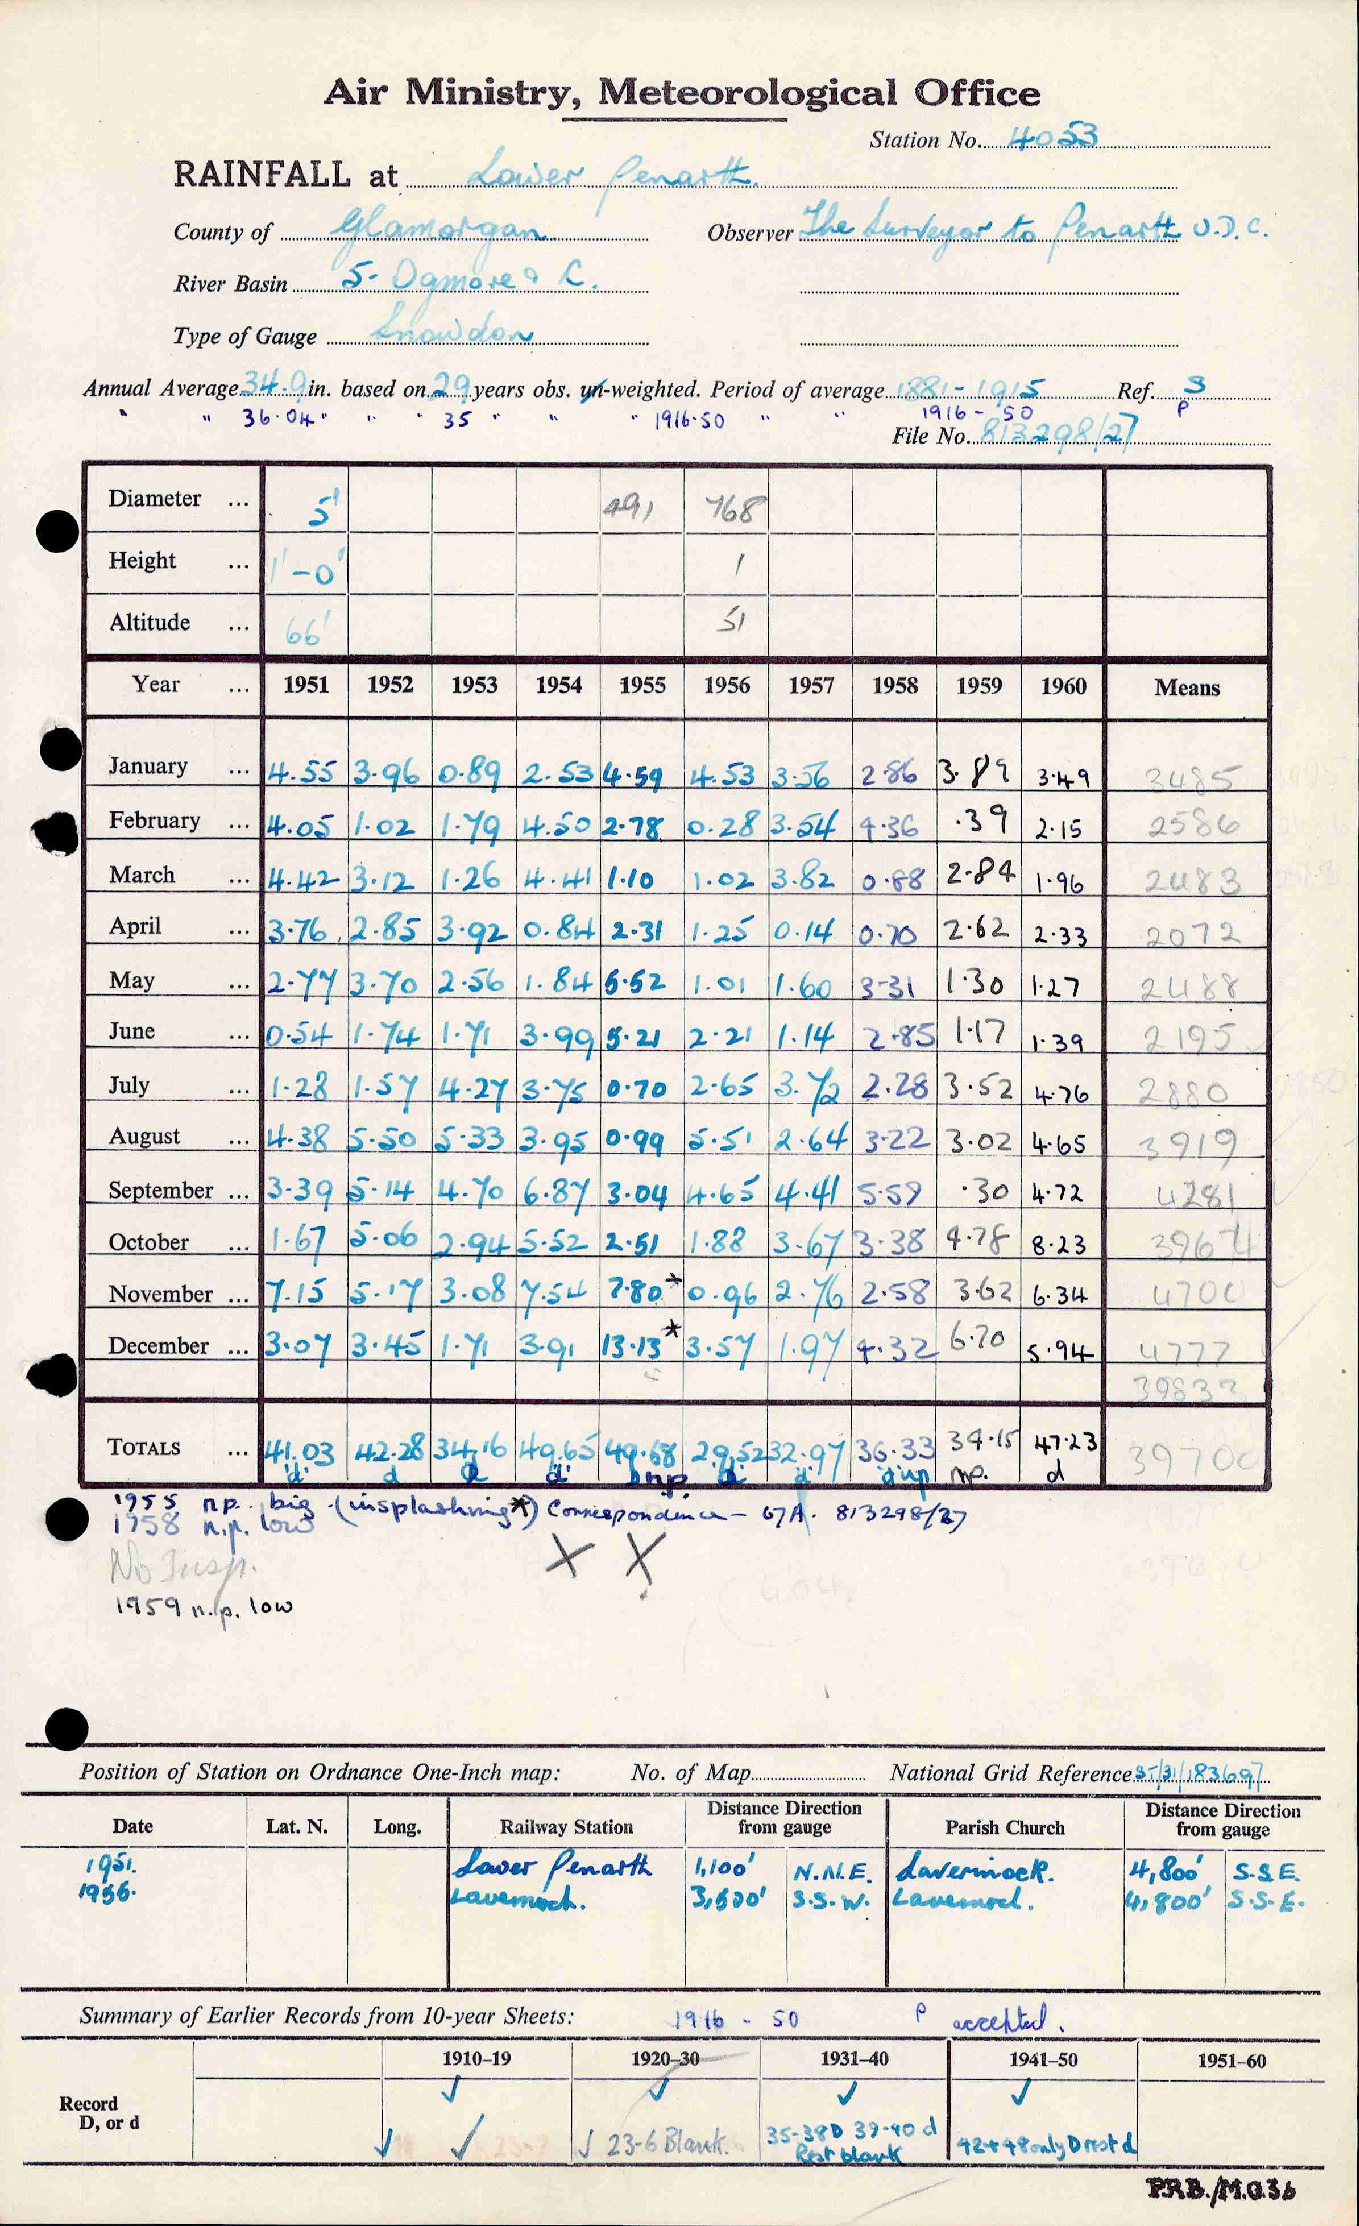 Air Ministry, Meteorological Office
Station No. 4053
RAINFALL at Lower Penarth.
County of Glamorgan Observer The Surveyor to Penarth U.D.C.
River Basin 5. Ogmore & C.
Type of Gauge Snowdon
Annual Average 34.9 in. based on 29 years obs. un-weighted. Period of average 1881-1915 Ref. S
" " 36.04" " " 35 " " " 1916-50 " " 1916-50 P
File No. 813298/27
Diameter ... 5" 491 768
Height ... 1'-0" 1
Altitude ... 66' 51
Year ... 1951 1952 1953 1954 1955 1956 1957 1958 1959 1960 Means
January ... 4.55 3.96 0.89 2.53 4.59 4.53 3.56 2.86 3.89 3.49 3485
February ... 4.05 1.02 1.79 4.50 2.78 0.28 3.54 4.36 .39 2.15 2586
March ... 4.42 3.12 1.26 4.41 1.10 1.02 3.82 0.88 2.84 1.96 2483
April ... 3.76 2.85 3.92 0.84 2.31 1.25 0.14 0.70 2.62 2.33 2072
May ... 2.77 3.70 2.56 1.84 5.52 1.01 1.60 3.31 1.30 1.27 2488
June ... 0.54 1.74 1.71 3.99 5.21 2.21 1.14 2.85 1.17 1.39 2195
July ... 1.28 1.57 4.27 3.75 0.70 2.65 3.72 2.28 3.52 4.76 2880
August ... 4.38 5.50 5.33 3.95 0.99 5.51 2.64 3.22 3.02 4.65 3919
September ... 3.39 5.14 4.70 6.87 3.04 4.65 4.41 5.59 .30 4.72 4281
October ... 1.67 5.06 2.94 5.52 2.51 1.88 3.67 3.38 4.78 8.23 3964
November ... 7.15 5.17 3.08 7.54 7.80* 0.96 2.76 2.58 3.62 6.34 4700
December ... 3.07 3.45 1.71 3.91 13.13* 3.57 1.97 4.32 6.70 5.94 4777
3983
TOTALS ... 41.03 42.28 34.16 49.65 49.68 29.52 32.97 36.33 34.15 47.23 39700
d d d d np. d d d np np. d
1955 n.p. big (insplashing*) Correspondence - 67A. 813298/27
1958 n.p. low
No Insp.
X X
1959 n.p. low
Position of Station on Ordnance One-Inch map: No. of Map National Grid Reference 31/183697
Date Lat. N. Long. Railway Station Distance Direction from gauge Parish Church Distance Direction from gauge
1951. Lower Penarth 1,100' N.N.E. Lavernock. 4,800' S.S.E.
1956. Lavernock. 3,500' S.S.W. Lavernock. 4,800' S.S.E.
Summary of Earlier Records from 10-year Sheets: 1916 - 50 P accepted.
1910–19 1920–30 1931–40 1941–50 1951–60
Record
D, or d
✓ ✓ ✓ ✓
✓ ✓ ✓ 23-6 Blank. 35-38D 39-40 d 42+48 only D rest d
Rest blank
P.R.B./M.O.36